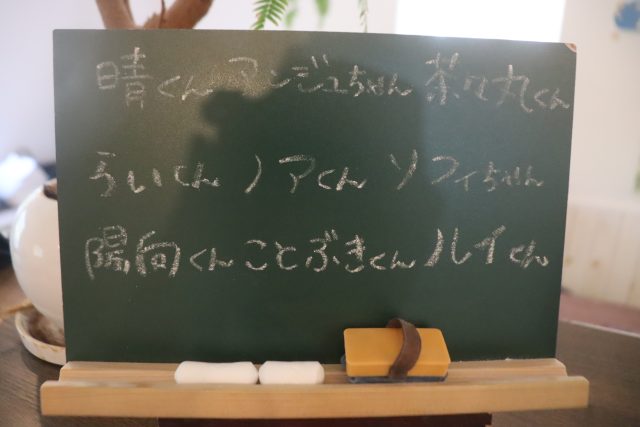 晴くん アンジュちゃん 茶々丸くん
らいくん ノアくん ソフィちゃん
陽向くん ことぶきくん ルイくん